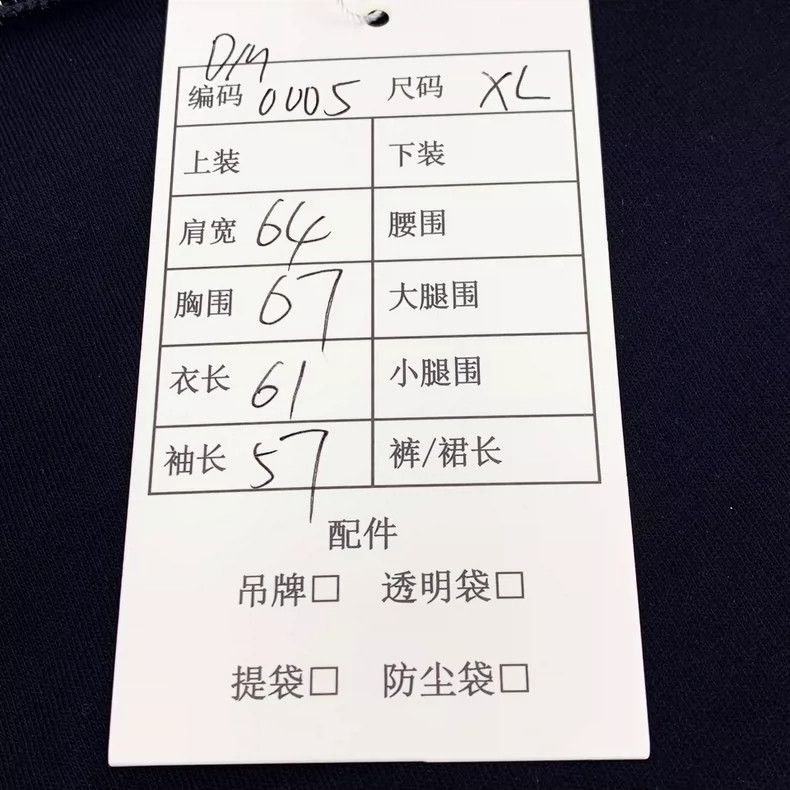 DIM
编码 0005 尺码 XL
上装 下装
肩宽 64 腰围
胸围 67 大腿围
衣长 61 小腿围
袖长 57 裤/裙长
配件
吊牌□ 透明袋□
提袋□ 防尘袋□